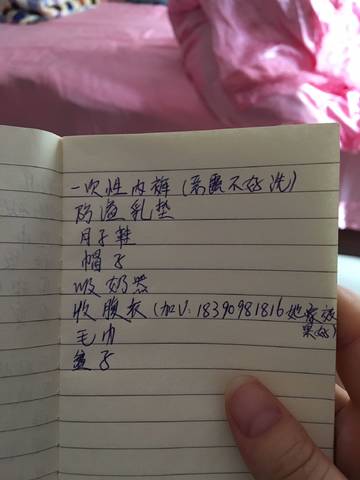 一次性内裤(恶露不好洗)
防溢乳垫
月子鞋
帽子
吸奶器
收腹衣(加V:18390981816她家效果好)
毛巾